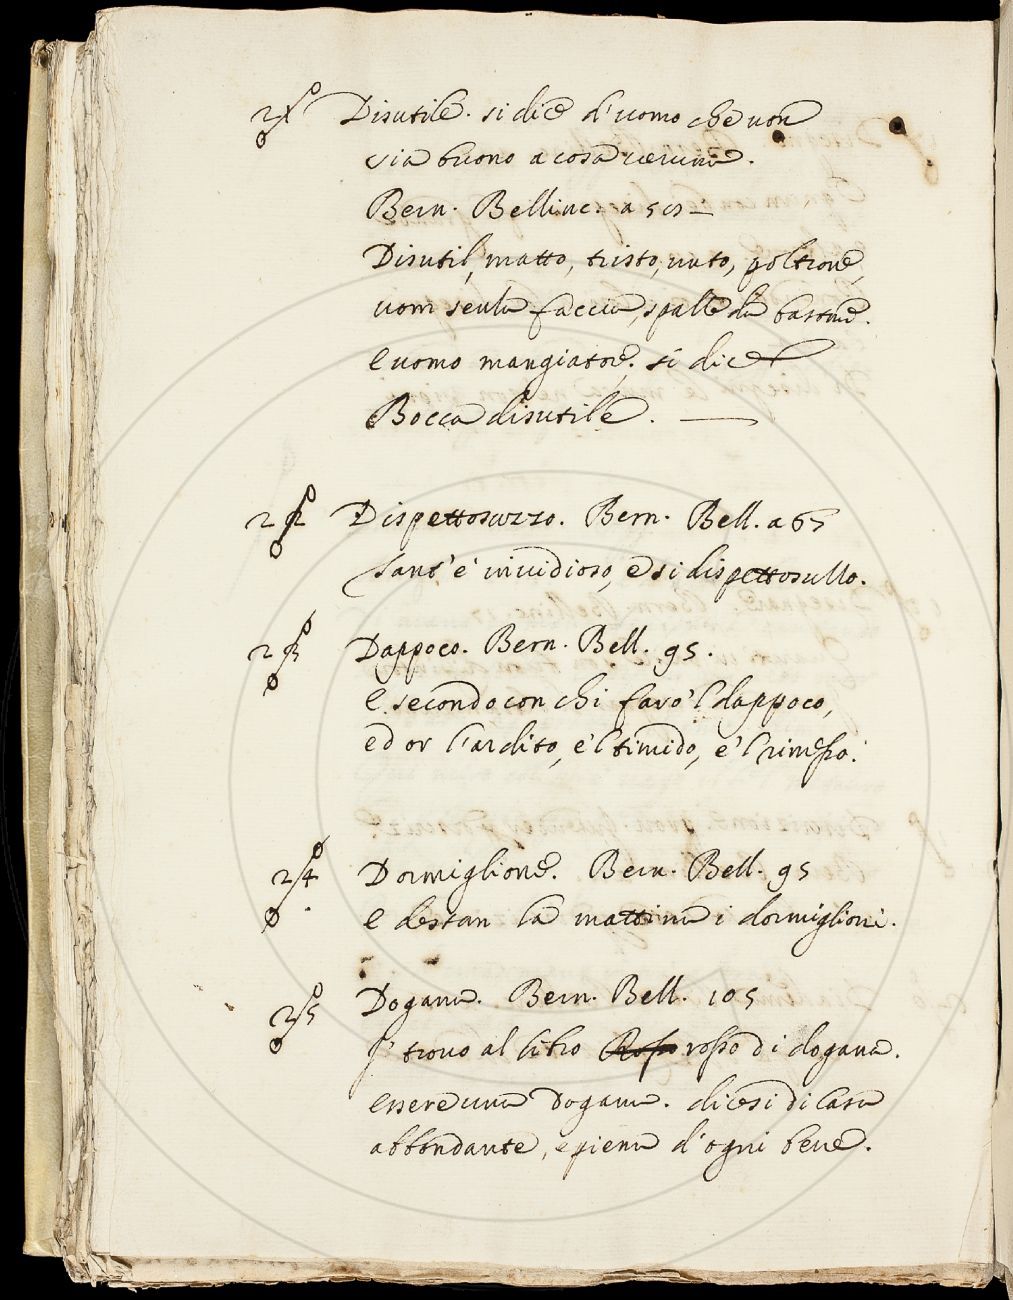 21 Disutile. si dice d'uomo che non
sia buono a cosa veruna.
Bern. Bellinc. a 50
Disutil, matto, tristo, nato, poltrone,
uom senza faccia, spalle da bastone.
E uomo mangiatore. si dice
Bocca disutile.
22 Dispettosuzzo. Bern. Bell. a 65
sant'è invidioso, e sì dispettosullo.
23 Dappoco. Bern. Bell. 95.
E secondo con chi farò 'l dappoco,
ed or l'ardito, e 'l timido, e 'l rimesso.
24 Dormiglione. Bern. Bell. 95
E destan la mattina i dormiglioni.
25 Dogana. Bern. Bell. 105
I' trovo al libro rosso di dogana.
essere una Dogana. dicesi di Casa
abbondante, e piena d'ogni bene.